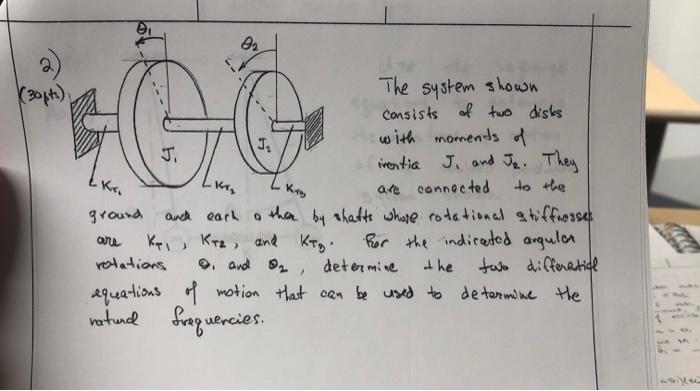 2)
(30pts)
θ₁
θ₂
J₁
J₂
K_T₁
K_T₂
K_T₃
The system shown
consists of two disks
with moments of
inertia J₁ and J₂. They
are connected to the
ground and each other by shafts whose rotational stiffnesses
are K_T₁, K_T₂, and K_T₃. For the indicated angular
rotations θ₁ and θ₂, determine the two differential
equations of motion that can be used to determine the
natural frequencies.